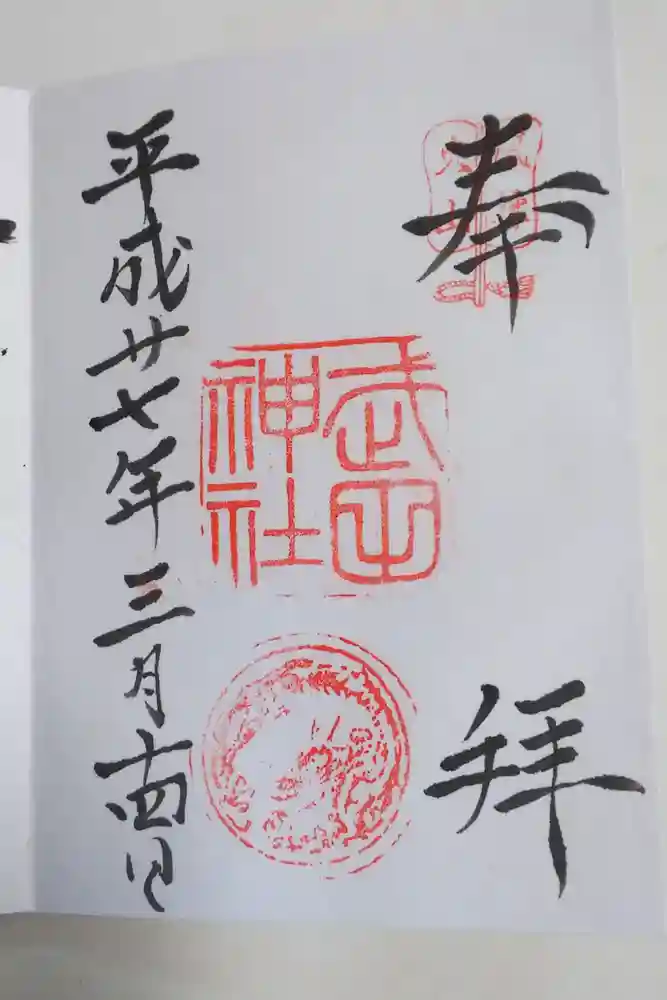 奉拝
武田
神社
平成廿七年三月十四日